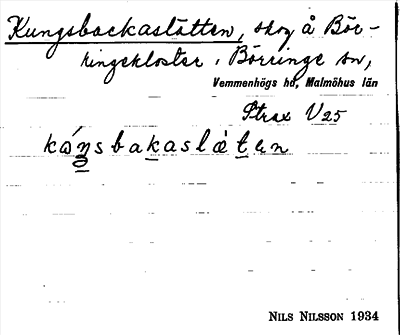 Kungsbackaslätten, skog å Bör-
ringekloster, Börringe sn,
Vemmenhögs hd, Malmöhus län
Strax V 25
kȧŋsbakaslæten
NILS NILSSON 1934